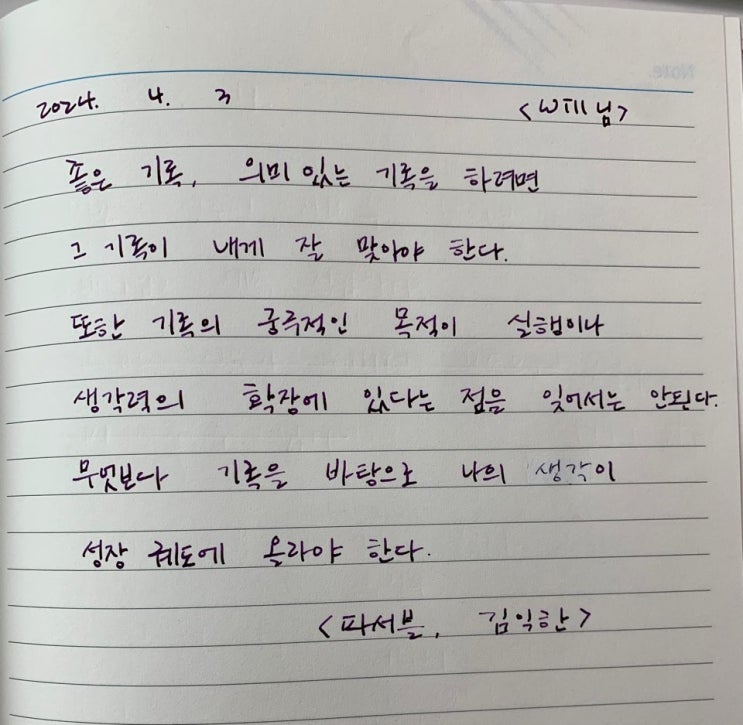 2024. 4. 3 <Will님>
좋은 기록, 의미 있는 기록을 하려면
그 기록이 내게 잘 맞아야 한다.
또한 기록의 궁극적인 목적이 실행이나
생각력의 확장에 있다는 점을 잊어서는 안된다.
무엇보다 기록을 바탕으로 나의 생각이
성장 궤도에 올라야 한다.
<파서블, 김익한>